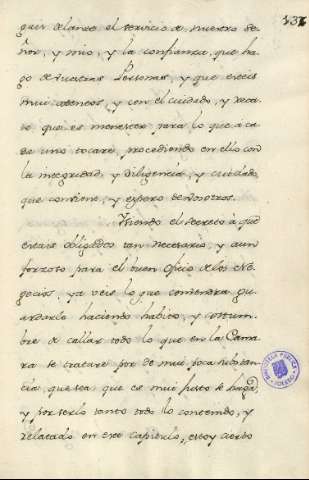 137
guir delante el servicio de nuestro Se-
ñor, y mio, y la confianza, que ha-
go de vuestras Personas, y que esteis
mui atentos, y con el cuidado, y reca-
to que es menester para lo que à ca-
da uno tocare, procediendo en ello con
la integridad, y diligencia, y cuidado
que conviene, y espero de vosotros.
Siendo el secreto à que
estais obligados tan necesario, y aun
forzoso para el buen oficio de los Ne-
gocios, ya veis lo que convendra gu-
ardarlo haciendo habito, y costum-
bre de callar todo lo que en la Cama-
ra se tratare por de mui poca substan-
cia que sea que es mui justo se haga,
y por serlo tanto todo lo contenido, y
relatado en este capitulo, estoy cierto
BIBLIOTECA PUBLICA
TOLEDO